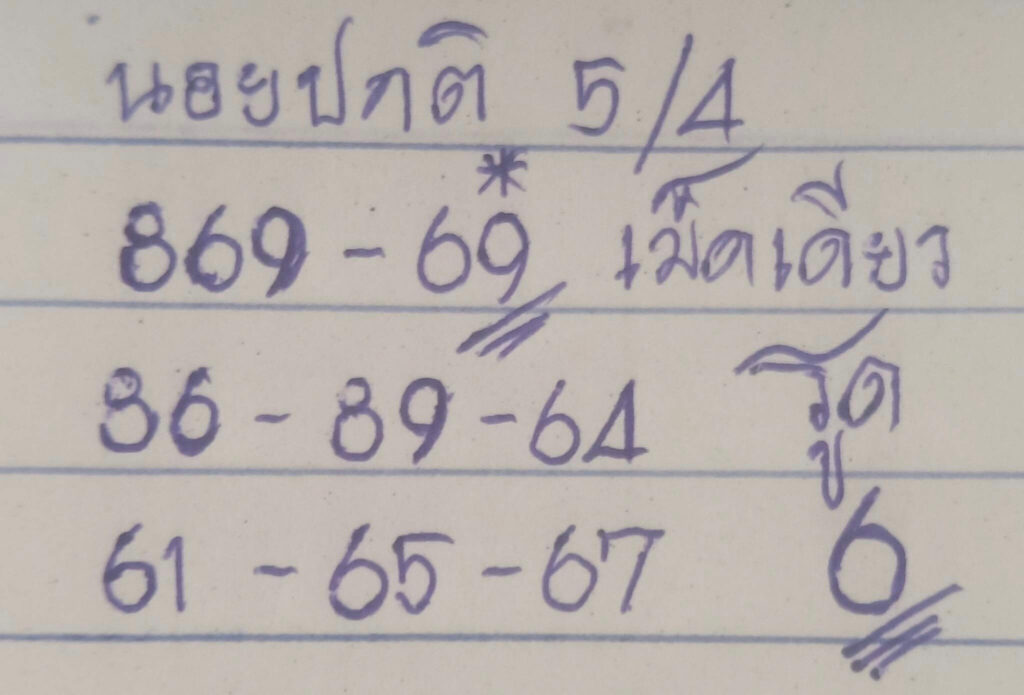 นอยปกติ 5/4
869 - 69* เม็ดเดียว
86 - 89 - 64 รูด
61 - 65 - 67 6